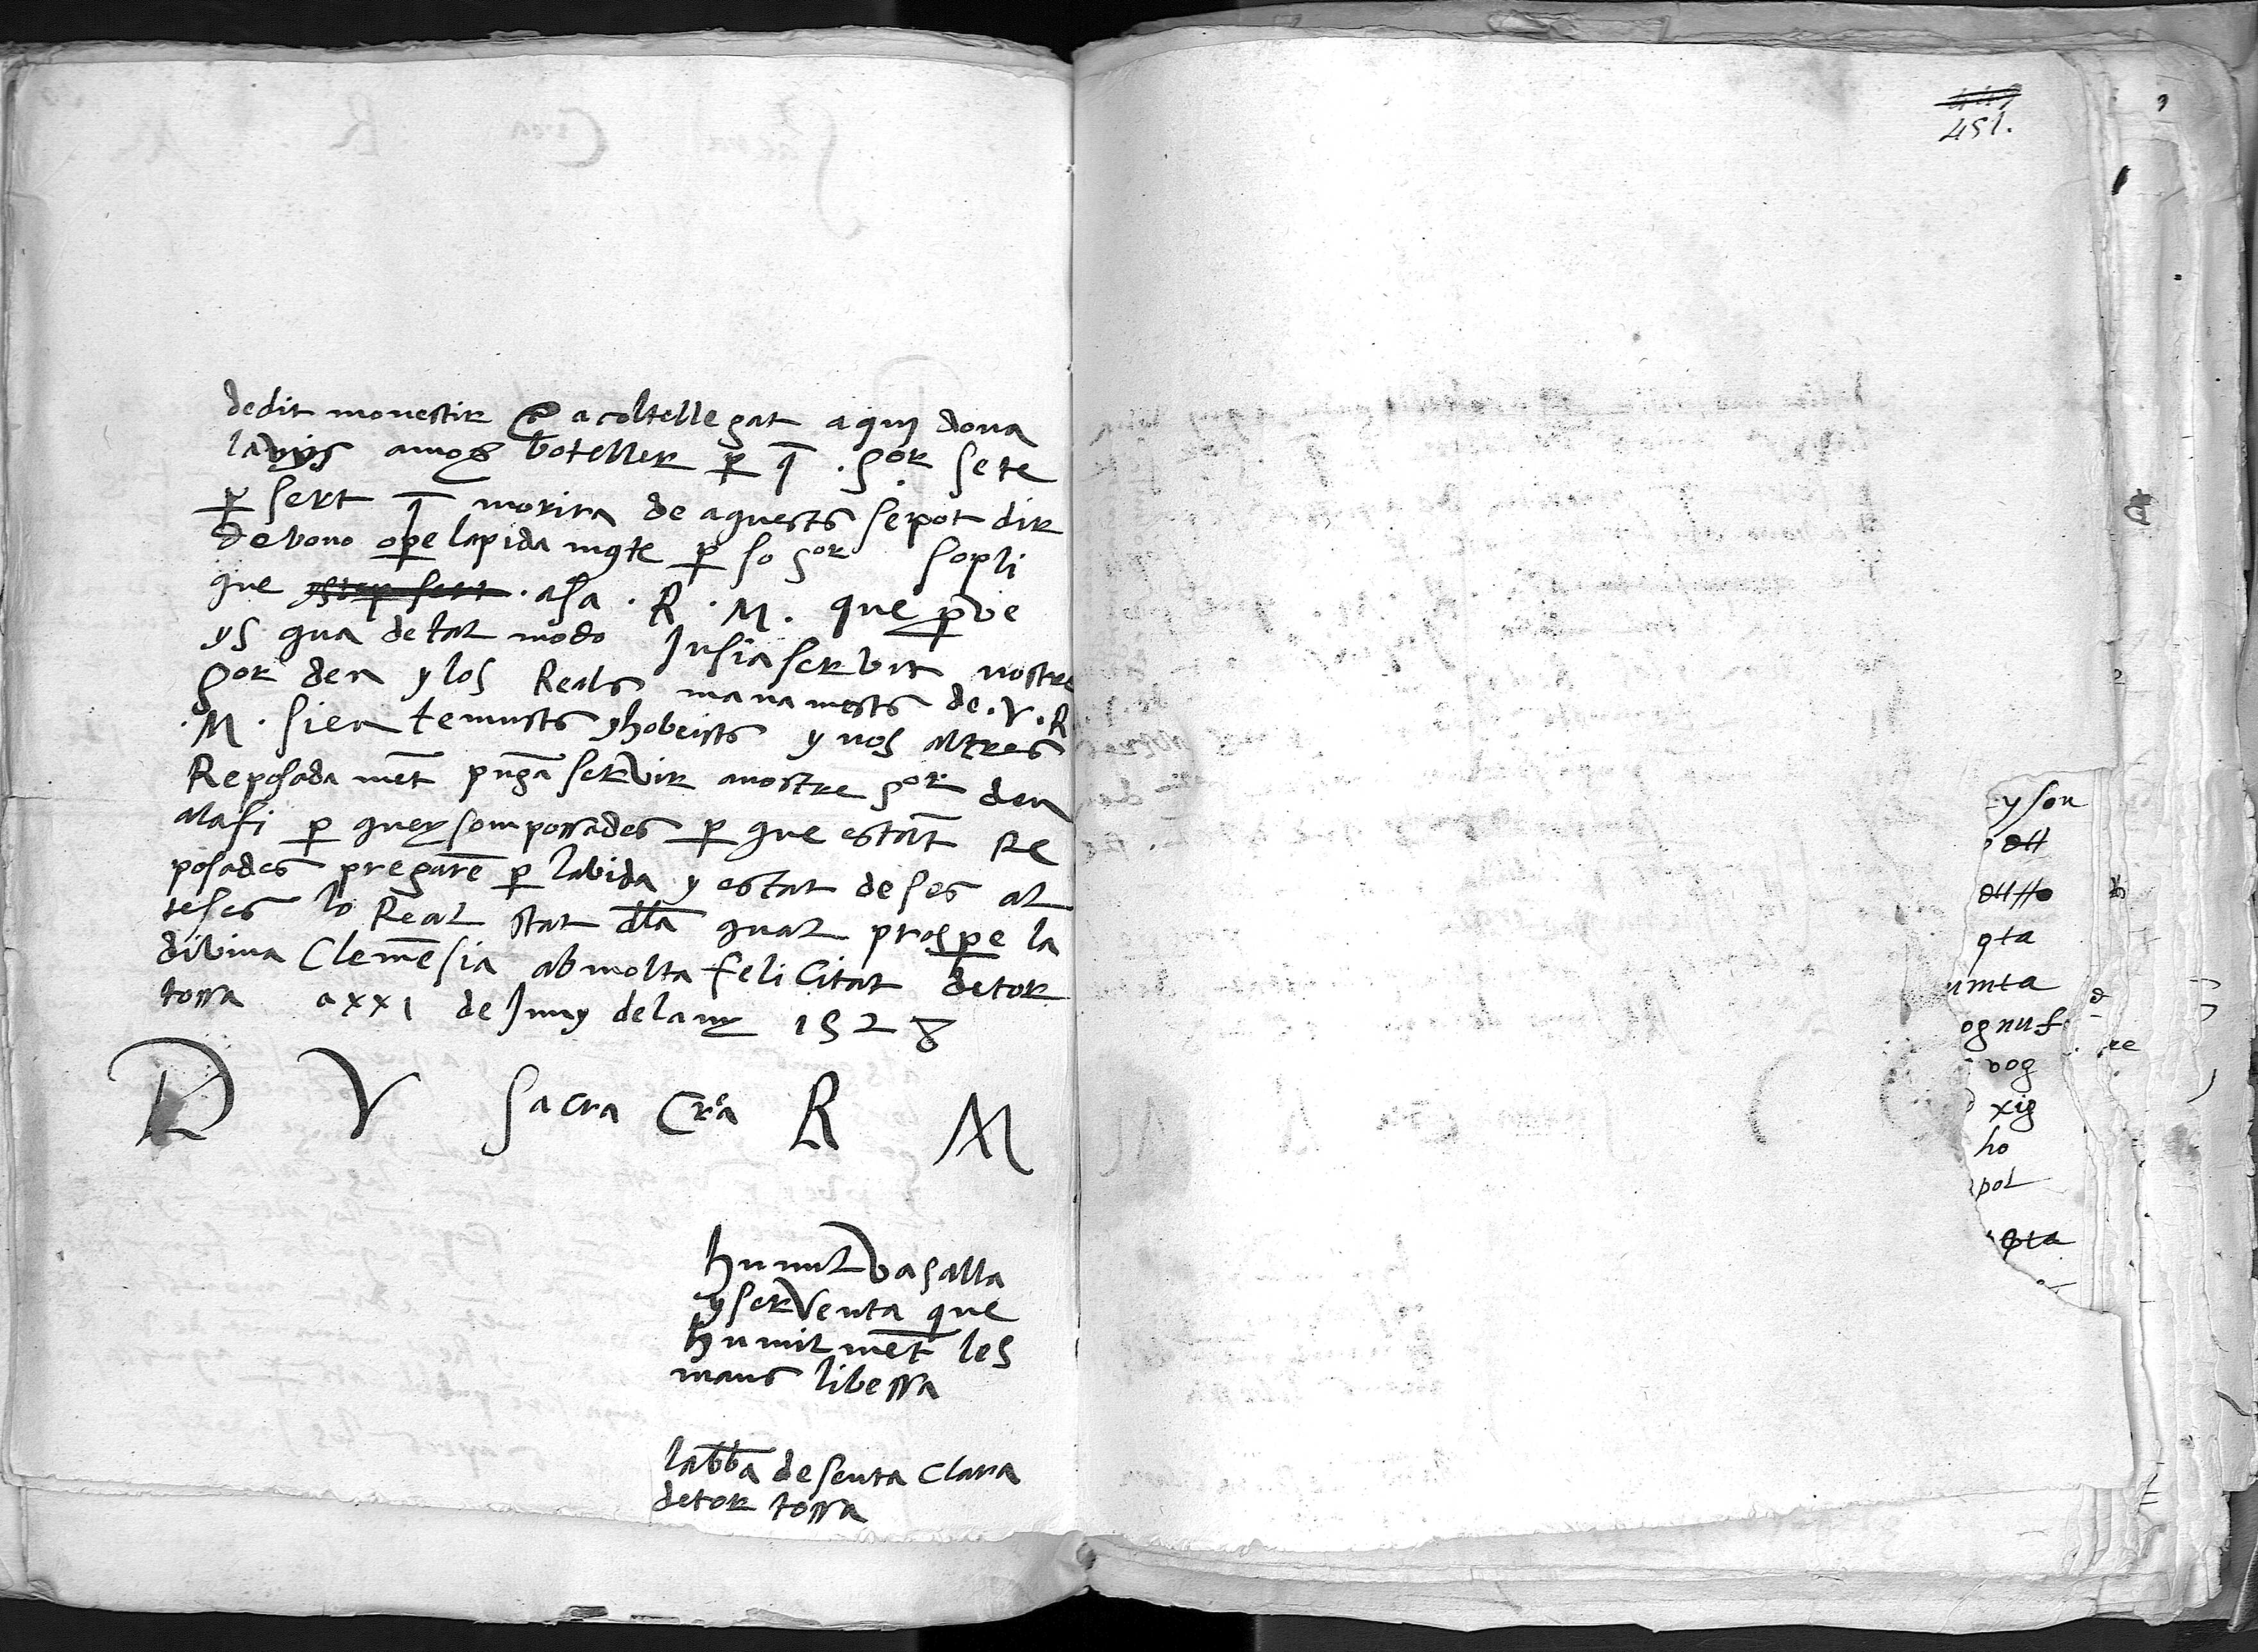 dedit monestir a coltellegat aqui dona
lavys a mog botteller p q̄ . sor sete
p sert q̄ morira de aquests se pot dir
de bono ope lapidamꝯte p so sor sopli
que ystap sert . a sa . R . M . que pve
ys qua de tal modo Jusia servit nostre
sor deu y los Reals manamēts de . V . R
. M . sien temusts y hobeists y nos altres
Reposada mēt pugā servir a nostre sor deu
al afi p que y som possades p que estāt Re
posades pregarē p la vida y estat de ses al
teses lo Real stat dla qual prospe la
divina Clemēsia ab molta feliCitat de tor
tossa a xxi de Juny de lany 1528
D V Sacra Cra R M
humil vasalla
y serventa que
humil mēt les
mans li bessa
labba de senta Clara
de tor tossa
447
451.
y son
ott
otto
qta
umta
og nuf
vog
xig
ho
pol
qta